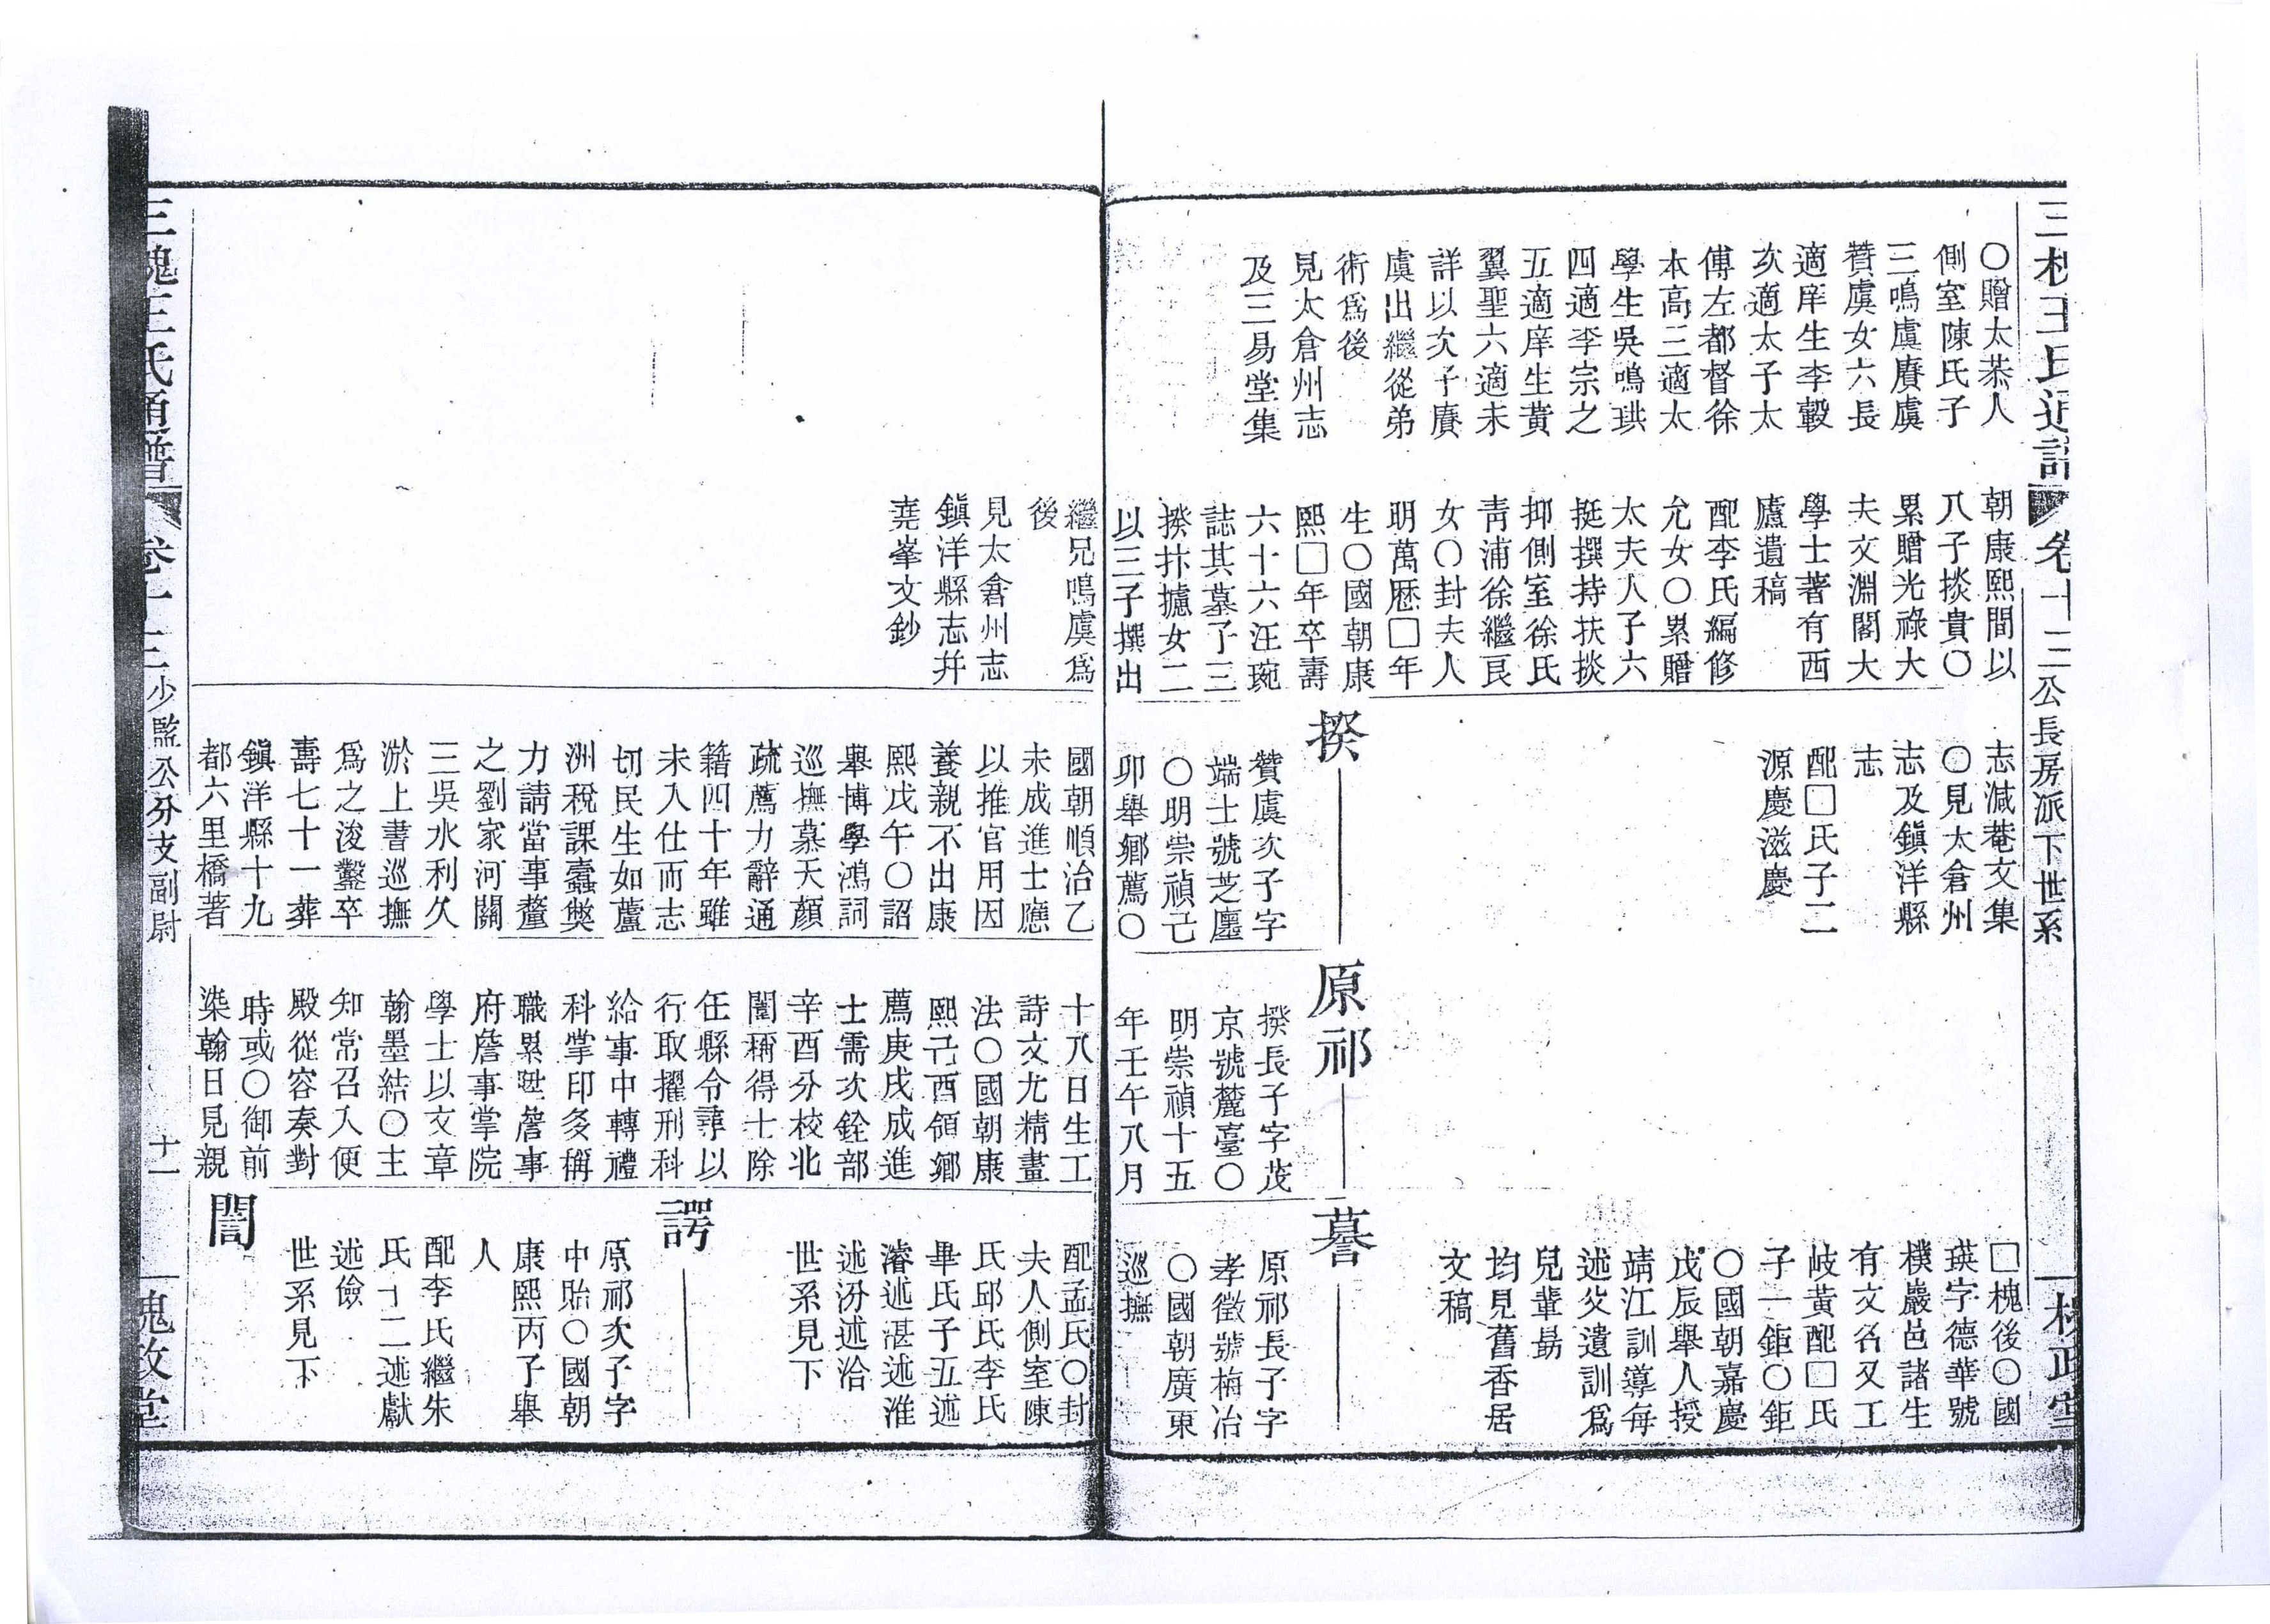 三槐王氏通譜 卷十三 公長房派下世系 槐政堂
〇贈太恭人
側室陳氏子
三鳴虞賡虞
贊虞女六長
適庠生李轂
次適太子太
傅左都督徐
本高三適太
學生吳鳴珙
四適李宗之
五適庠生黄
翼聖六適未
詳以次子賡
虞出繼從弟
術爲後
見太倉州志
及三易堂集
朝康熙間以
八子掞貴〇
累贈光祿大
夫文淵閣大
學士著有西
廬遺稿
配李氏編修
允女〇累贈
太夫人子六
挺撰持扶掞
抑側室徐氏
青浦徐繼良
女〇封夫人
明萬厯□年
生〇國朝康
熙□年卒壽
六十六汪琬
誌其墓子三
揆抃攄女二
以三子撰出
志減菴文集
〇見太倉州
志及鎮洋縣
志
配□氏子二
源慶滋慶
揆
贊虞次子字
端士號芝廛
〇明崇禎己
卯舉鄉薦〇
原祁
揆長子字茂
京號麓臺〇
明崇禎十五
年壬午八月
□槐後〇國
瑛字德華號
樸巖邑諸生
有文名又工
岐黄配□氏
子一鉅〇鉅
〇國朝嘉慶
戊辰舉人授
靖江訓導每
述父遺訓爲
兒輩勗
均見舊香居
文稿
謩
原祁長子字
孝徵號梅冶
〇國朝廣東
巡撫
繼兄鳴虞爲
後
見太倉州志
鎮洋縣志幷
堯峯文鈔
國朝順治乙
未成進士應
以推官用因
養親不出康
熙戊午〇詔
舉博學鴻詞
巡撫慕天顏
疏薦力辭通
籍四十年雖
未入仕而志
切民生如蘆
洲稅課蠹獘
力請當事釐
之劉家河關
三吳水利久
淤上書巡撫
爲之浚鑿卒
壽七十一葬
鎮洋縣十九
都六里橋著
十八日生工
詩文尤精畫
法〇國朝康
熙己酉領鄉
薦庚戌成進
士需次銓部
辛酉分校北
闈稱得士除
任縣令尋以
行取擢刑科
給事中轉禮
科掌印多稱
職累𨑗詹事
府詹事掌院
學士以文章
翰墨結〇主
知常召入便
殿從容奏對
時或〇御前
染翰日見親
配孟氏〇封
夫人側室陳
氏邱氏李氏
畢氏子五述
濬述湛述淮
述汾述洽
世系見下
諤
原祁次子字
中貽〇國朝
康熙丙子舉
人
配李氏繼朱
氏子二述獻
述儉
世系見下
誾
三槐王氏通譜 卷十三 少監公分支副尉 十一 槐政堂